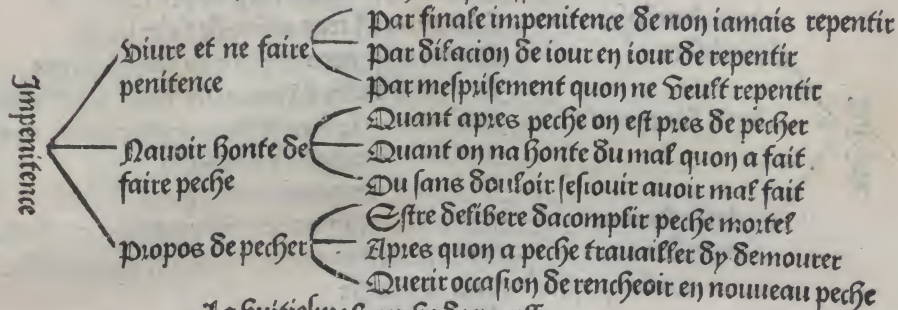 Impenitence
Viure et ne faire
penitence
Par finale impenitence de non iamais repentir
Par dilacion de iour en iour de repentir
Par mesprisement quon ne veult repentir
Nauoir honte de
faire peche
Quant apres peche on est pres de pecher
Quant on na honte du mal quon a fait.
Ou sans douloir sesiouir auoir mal fait
Propos de pecher
Estre delibere dacomplir peche mortel
Apres quon a peche trauailler dy demourer
Querir occasion de rencheoir en nouueau peche